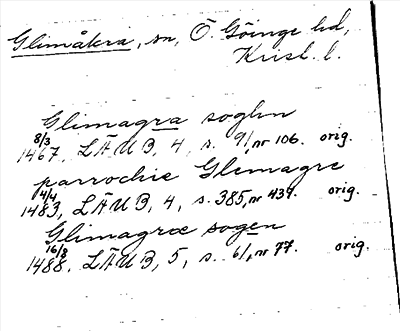 Glimåkra, sn, Ö. Göinge hd,
Krist. l.
Glimagra soghn
8/3 1467, LÄUB, 4, s. 91, nr 106. orig.
parrochie Glemagre
4/4 1483, LÄUB, 4, s. 385, nr 439. orig.
Glimagræ sogen
16/8 1488, LÄUB, 5, s. 61, nr 77. orig.